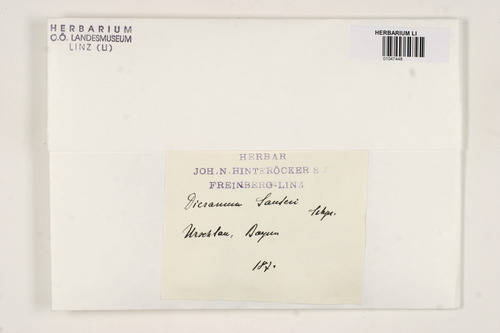 HERBARIUM
O.Ö. LANDESMUSEUM
LINZ (LI)
HERBARIUM LI
01047448
HERBAR
JOH. N. HINTERÖCKER S J
FREINBERG-LINZ
Dicranum Sauteri
Schpr.
Urschlau, Bayern
187.